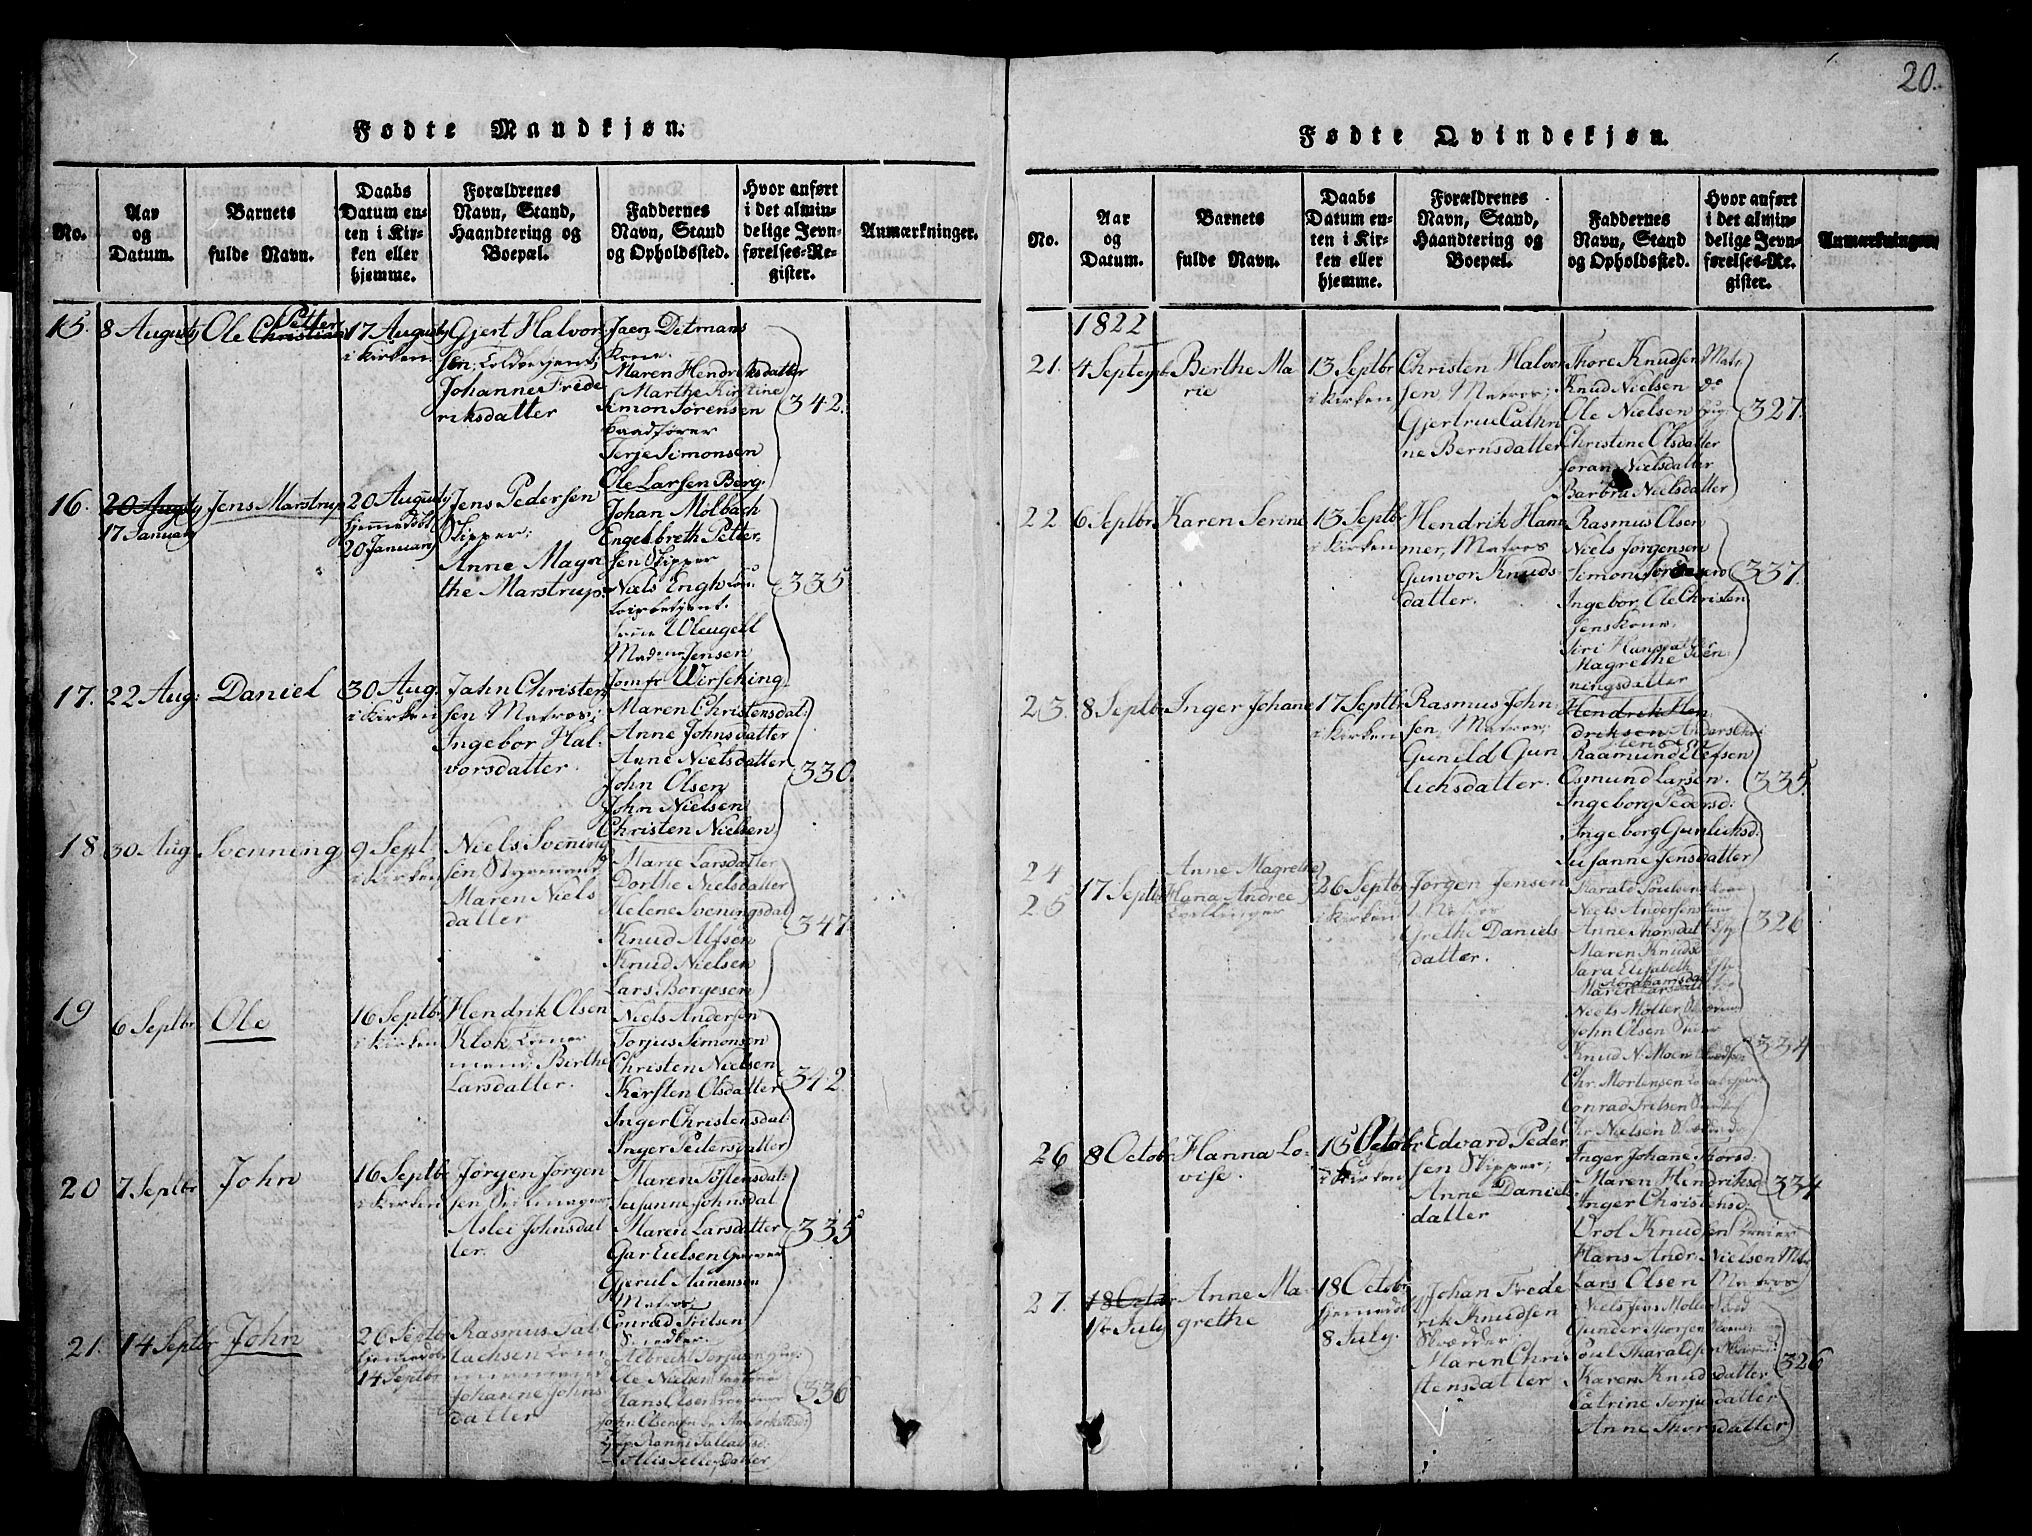 20.
Fødte Mandkjøn.
No.
Aar
og
Datum.
Barnets
fulde Navn.
Daabs
Datum en-
ten i Kir-
ken eller
hjemme.
Forældrenes
Navn, Stand,
Haandtering og
Boepæl.
Faddernes
Navn, Stand
og Opholdssted.
Hvor anført
i det almin-
delige Jevn-
førelses-Re-
gister.
Anmærkninger.
15. 8 Augusty
Ole Christian
Petter
17 Augusty
i Kirken
Gjert Halvor
sen,
Johanne Frede
riksdatter
Jaen Ditmans
Kone.
Maren Hendriksdatter
Marthe Kirstine
Simon Sørensen
Baadfører
Terje Simonsen
Ole Larsen Berg.
342.
16. 20 Augsty
17 January
Jens Marstrup
20 Augusty
hjemmedøbt
20 January
Jens Pedersen
Skipper;
Anne Magre
the Marstrup.
Johan Molbach
Engelbreth Petter
sen Skipper
Niels Engh
Mad Jensen
Jomfr Wirsching
335
17. 22 Aug:
Daniel
30 Aug.
i Kirken
Jahn Christen
sen Matros;
Ingebor Hal-
vorsdatter.
Maren Christensdat:
Anne Johnsdatter
Anne Nielsdatter
John Olsen
John Nielsen
Christen Nielsen
330.
18 30 Aug
Svenning
9 Sept.
i Kirken
Niels Svening
sen Styrmand
Maren Niels
datter
Marie Larsdatter
Dorthe Nielsdatter
Helene Sveningsdat
Knud Alfsen
Knud Nielsen
Lars Borgesen
347
19
6 Septbr
Ole
16 Septbr
i Kirken
Hendrik Olsen
Klok
Birthe
Larsdatter.
Niels Andersen
Torjus Simonsen
Christen Nielsen
Kirsten Olsdatter
Inger Christensdat:
Inger Pedersdatter
342
20 7 Septbr
John
16 Septbr
i Kirken
Jørgen Jørgen
sen
Aslei Johnsdat
ter.
Maren Töstensdat:
Susanne Johnsdal
Maren Larsdatter
Gar Eielsen
Gjerul Aanensen
Matros
Conrad Irilsen
335
21. 14 Septbr
John
26 Septbr
hjemmedøbt
14 Septbr
Rasmus Tal
lachsen
Johanne Johns
datter
Albrecht Torjusen
Ole Nielsen
Hans Olsen
John Olsen
Ranni Tallachsd:
Allis Tellefsdatter
336
Fødte Qvindekjøn.
No.
Aar
og
Datum.
Barnets
fulde Navn.
Daabs
Datum en-
ten i Kir-
ken eller
hjemme.
Forældrenes
Navn, Stand,
Haandtering og
Boepæl.
Faddernes
Navn, Stand
og Opholdssted.
Hvor anført
i det almin-
delige Jevn-
førelses-Re-
gister.
Anmærkninger
1822
21. 4 Septemb
Berthe Ma
rie
13 Septbr
i Kirken
Christen Halvor
sen, Matros;
Gjertrue Cathri
ne Bernsdatter
Thore Knudsen Matr
Knud Nielsen do
Ole Nielsen
Christine Olsdatter
Joran Nielsdatter
Barbra Nielsdatter
327.
22 6 Septbr
Karen Serine
13 Septbr
i Kirken
Hendrik Ham
mer, Matros
Gunvor Knuds
datter.
Rasmus Olsen
Niels Jørgensen
Simon
Ingebor Ole Christen
sens Kone
Siri Hansdatter
Magrethe Sven
ningsdatter
337.
23. 8 Septbr
Inger Johane
17 Septbr
i Kirken
Rasmus John
sen, Matros;
Gunild Gun
lichsdatter.
Hendrik Hen
driksen Anders Chri
stensen
Raamund Elefsen
Osmund Larsen.
Ingeborg Pedersd:
Ingeborg Gunlichsd:
Susanne Jensdatter
335.
24
25
17 Septbr
Anne Magrethe
Hana Andree
26 Septbr
i Kirken
Jørgen Jensen
Grethe Daniels
datter.
Harald Poulsens Kone
Niels Andersens Kone
Anne Thorsdat
Maren Knuds
Sara Elisabeth
Abrahamsdat
Maren Larsdatter
Niels Møller
John Olsen
Knud N. Moen
Chr. Mortensen
Conrad Irelsen
Chr. Nielsen
326
334
26 8 Octobr
Hanna Lo-
vise.
15 Octobr
i Kirken
Edvard Peder
sen Skipper;
Anne Daniels
datter
Inger Johane Thorsd:
Maren Hendriksd
Inger Christensd:
Urol Knudsen
Hans Andr. Nielsen
Lars Olsen Matros
334
27. 18 Octbr
1ste July
Anne Ma-
grethe
18 Octobr
hjemmedøbt
8 July.
Johan Frede
rik Knudsen
Skrædder;
Maren Chris
stensdatter
Niels Jens Moller
Gunder Thorsen
Poul Tharaldsen
Karen Knudsdatter
Catrine Torjusdatter
Anne Thorsdatter
326